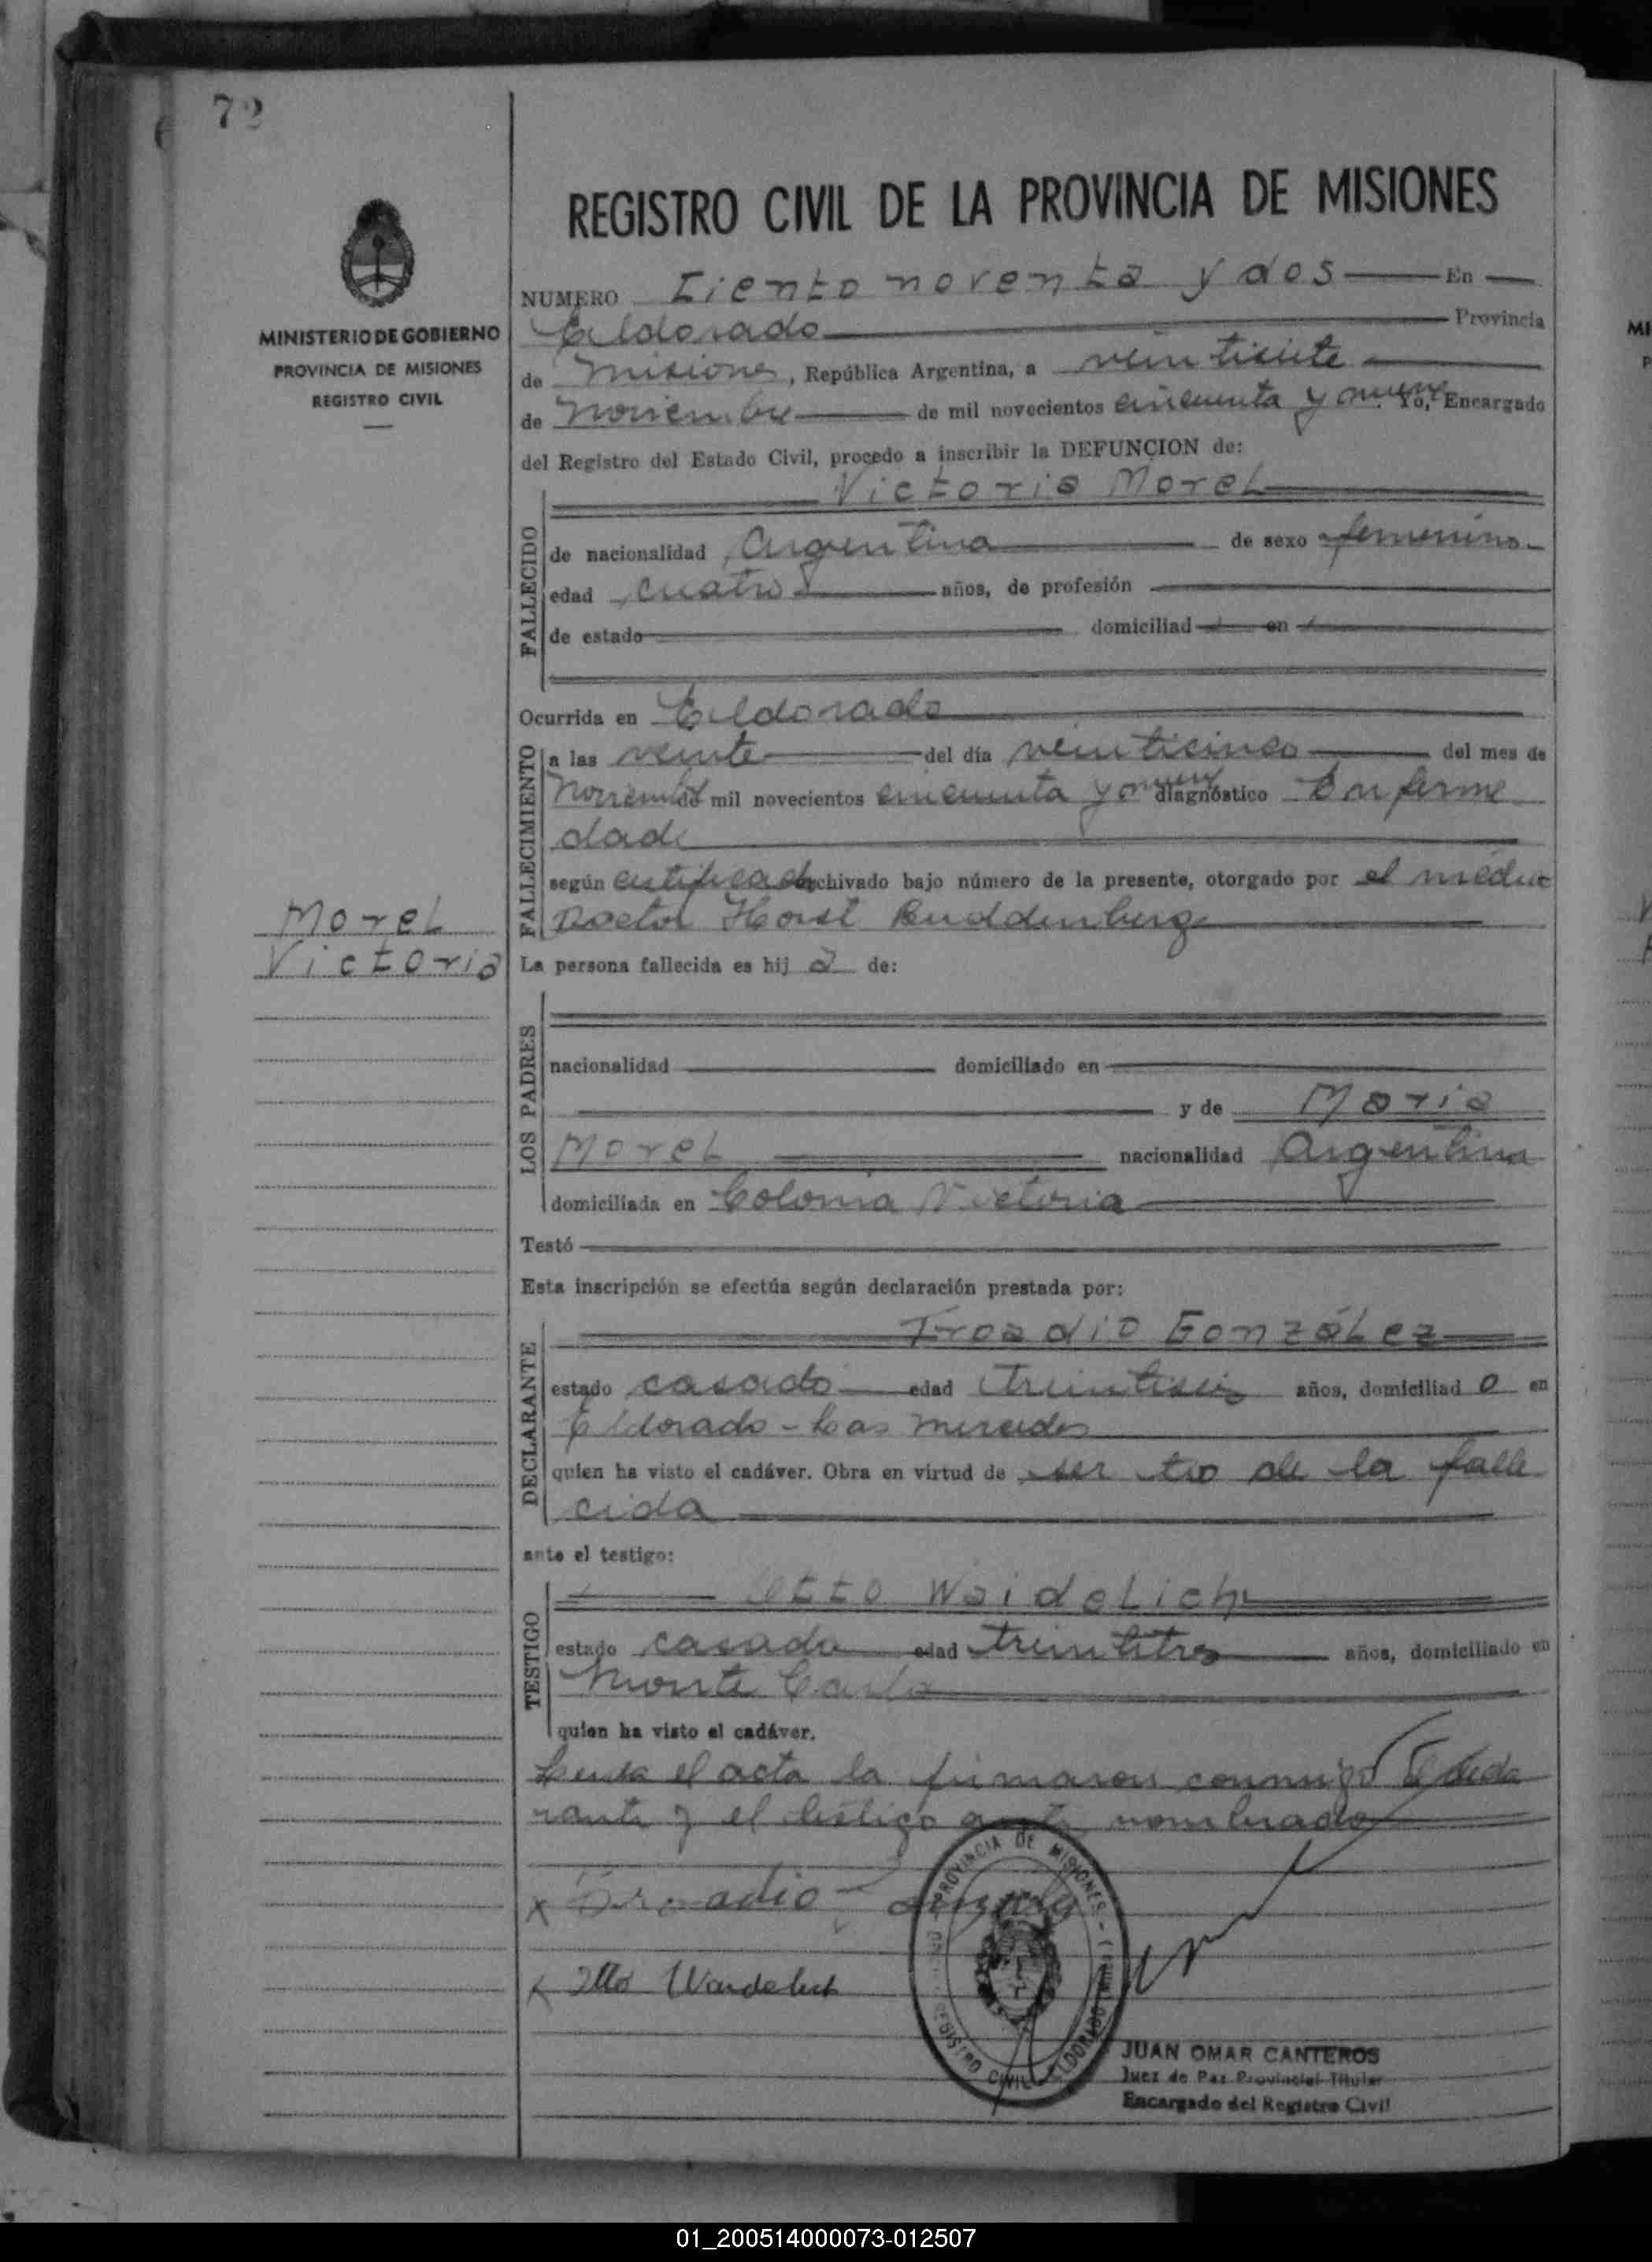 72
REGISTRO CIVIL DE LA PROVINCIA DE MISIONES
MINISTERIO DE GOBIERNO
PROVINCIA DE MISIONES
REGISTRO CIVIL
NUMERO Ciento noventa y dos En
Eldorado Provincia
de Misiones, República Argentina, a veintisiete
de Noviembre de mil novecientos cincuenta y nueve. Yo, Encargado
del Registro del Estado Civil, procedo a inscribir la DEFUNCION de:
Victoria Morel
FALLECIDO
de nacionalidad Argentina de sexo femenino
edad cuatro años, de profesión
de estado domiciliad en
Ocurrida en Eldorado
FALLECIMIENTO
a las veinte del día veinticinco del mes de
Noviembre de mil novecientos cincuenta y nueve diagnóstico Enferme
dad
según certificado archivado bajo número de la presente, otorgado por el médico
Doctor Horst Buddenberg
Morel
Victoria
La persona fallecida es hij a de:
LOS PADRES
nacionalidad domiciliado en
y de Maria
Morel nacionalidad Argentina
domiciliada en Colonia Victoria
Testó
Esta inscripción se efectúa según declaración prestada por:
Troadio González
DECLARANTE
estado casado edad treintiseis años, domiciliad o en
Eldorado - Las Mercedes
quien ha visto el cadáver. Obra en virtud de ser tio de la falle
cida
ante el testigo:
Otto Waidelich
TESTIGO
estado casado edad treintitres años, domiciliado en
Monte Carlo
quien ha visto el cadáver.
Leida el acta la firmaron conmigo el decla
rante y el testigo ante nombrado
x Troadio
x Otto Waidelich
PROVINCIA DE MISIONES
REGISTRO CIVIL ELDORADO
JUAN OMAR CANTEROS
Juez de Paz Provincial Titular
Encargado del Registro Civil
01_200514000073-012507